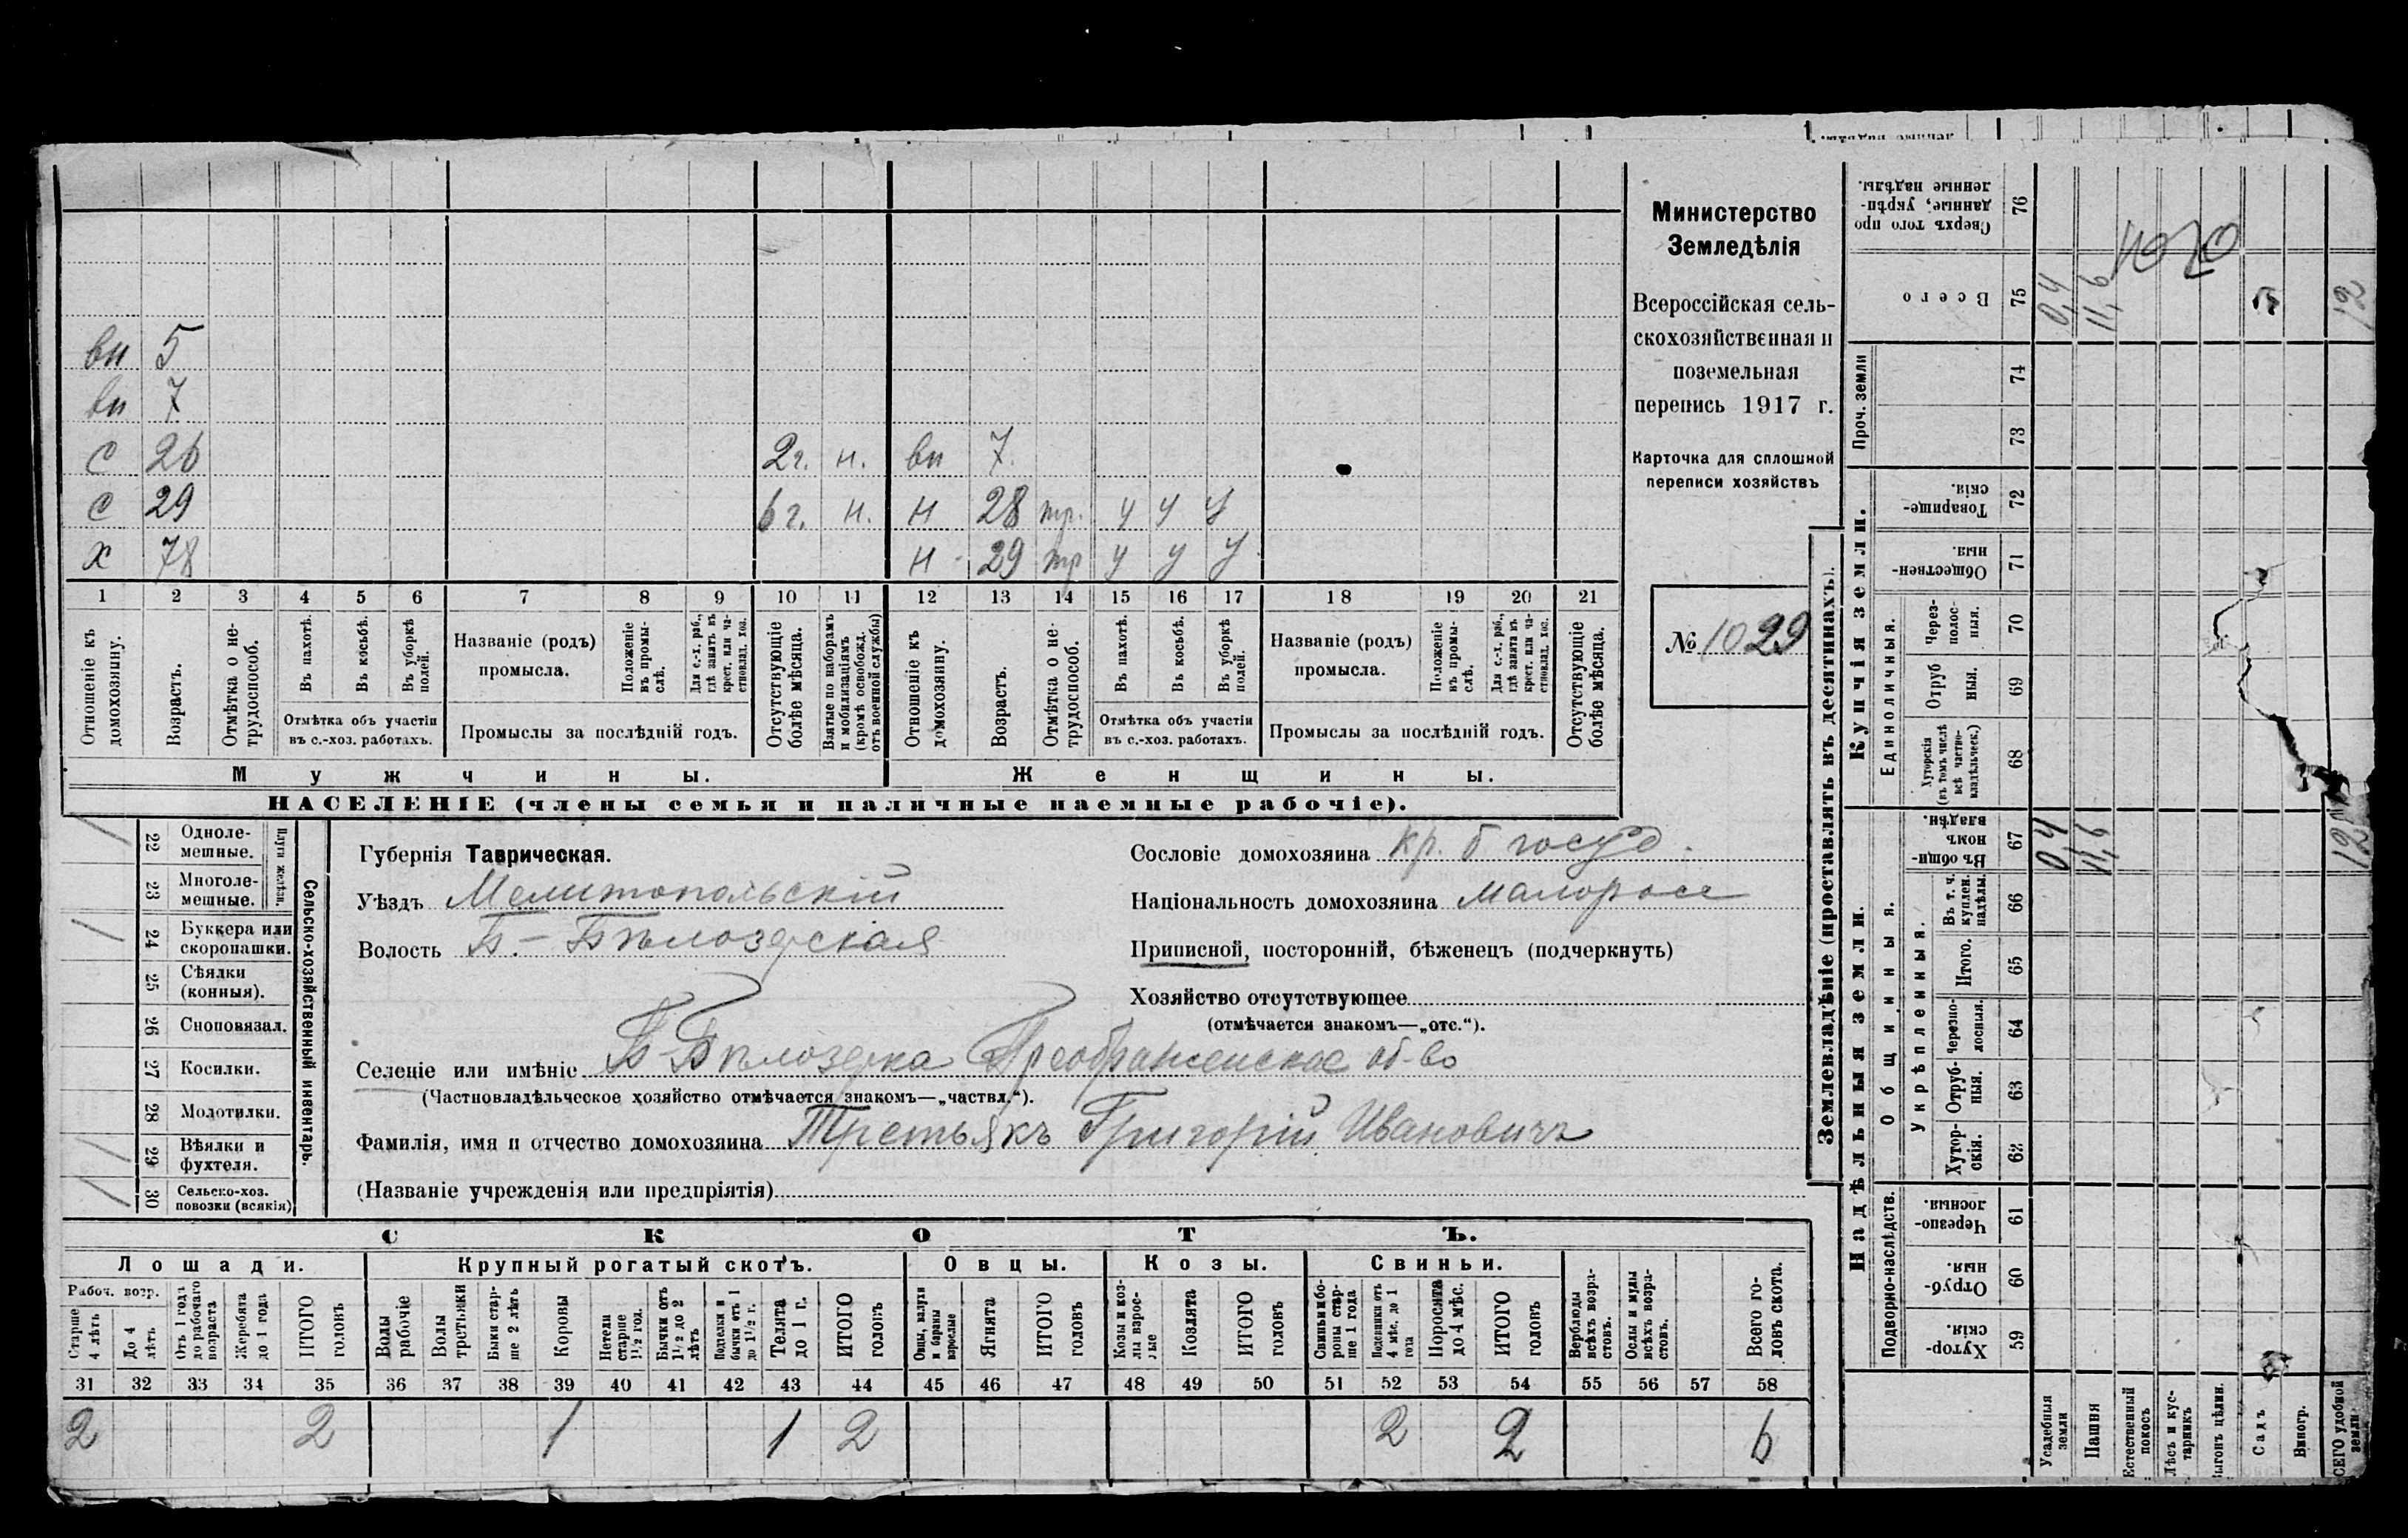 Министерство
Земледѣлія
Всероссійская сель-
скохозяйственная и
поземельная
перепись 1917 г.
Карточка для сплошной
переписи хозяйствъ
№ 1029
вн 5
вн 7
с 26 2 г. н. вн 7.
с 29 6 г. н. н 28 тр. у у у
х 78 н 29 тр у у у
1 2 3 4 5 6 7 8 9 10 11 12 13 14 15 16 17 18 19 20 21
Отношеніе къ домохозяину.
Возрастъ.
Отмѣтка о не-трудоспособ.
Въ пахотѣ.
Въ косьбѣ.
Въ уборкѣ полей.
Отмѣтка объ участіи въ с.-хоз. работахъ.
Названіе (родъ) промысла.
Положеніе въ промы-слѣ.
Для с.-х. раб., гдѣ занятъ въ крест. или ча-стновлад. хоз.
Промыслы за послѣдній годъ.
Отсутствующіе болѣе мѣсяца.
Взятые по наборамъ и мобилизаціямъ (кромѣ освобожд. отъ военной службы)
Отношеніе къ домохозяину.
Возрастъ.
Отмѣтка о не-трудоспособ.
Въ пахотѣ.
Въ косьбѣ.
Въ уборкѣ полей.
Отмѣтка объ участіи въ с.-хоз. работахъ.
Названіе (родъ) промысла.
Положеніе въ промы-слѣ.
Для с.-х. раб., гдѣ занята въ крест. или ча-стновлад. хоз.
Промыслы за послѣдній годъ.
Отсутствующіе болѣе мѣсяца.
Мужчины. Женщины.
НАСЕЛЕНІЕ (члены семьи и наличные наемные рабочіе).
Сельско-хозяйственный инвентарь.
Плуги желѣзн.
22 Одноле-мешные. /
23 Многоле-мешные.
24 Буккера или скоропашки. /
25 Сѣялки (конныя).
26 Сноповязал.
27 Косилки.
28 Молотилки.
29 Вѣялки и фухтеля. /
30 Сельско-хоз. повозки (всякія) /
Губернія Таврическая.
Уѣздъ Мелитопольскій
Волость Б.-Бѣлозерская
Сословіе домохозяина кр. б госуд.
Національность домохозяина малоросс
Приписной, посторонній, бѣженецъ (подчеркнуть)
Хозяйство отсутствующее
(отмѣчается знакомъ—„отс.“).
Селеніе или имѣніе Б-Бѣлозерка Преображенское об-во
(Частновладѣльческое хозяйство отмѣчается знакомъ—„частвл.“).
Фамилія, имя и отчество домохозяина Третьякъ Григорій Ивановичъ
(Названіе учрежденія или предпріятія)
СКОТЪ.
Лошади. Крупный рогатый скотъ. Овцы. Козы. Свиньи.
Рабоч. возр.
Старше 4 лѣтъ
До 4 лѣтъ
Отъ 1 года до рабочаго возраста
Жеребята до 1 года
ИТОГО головъ
Волы рабочіе
Волы третьяки
Быки стар-ше 2 лѣтъ
Коровы
Нетели старше 1½ год.
Бычки отъ 1½ до 2 лѣтъ
Подтелки и бычки отъ 1 до 1½ г.
Телята до 1 г.
ИТОГО головъ
Овцы, валухи и бараны взрослые
Ягнята
ИТОГО головъ
Козы и коз-лы взрос-лые
Козлята
ИТОГО головъ
Свиньи и бо-ровы стар-ше 1 года
Подсвинки отъ 4 мѣс. до 1 года
Поросята до 4 мѣс.
ИТОГО головъ
Верблюды всѣхъ возра-стовъ.
Ослы и мулы всѣхъ возра-стовъ.
Всего го-ловъ скота.
31 32 33 34 35 36 37 38 39 40 41 42 43 44 45 46 47 48 49 50 51 52 53 54 55 56 57 58
2 2 1 1 2 2 2 6
Землевладѣніе (проставлять въ десятинахъ).
Надѣльныя земли. Купчія земли. Проч. земли
Подворно-наслѣдств.
Общинныя.
Укрѣпленныя.
Единоличныя.
Хутор-скія. 59
Отруб-ныя. 60
Черезпо-лосныя. 61
Хутор-скія. 62
Отруб-ныя. 63
Черезпо-лосныя. 64
Итого. 65
Въ т. ч. куплен. надѣлы. 66
Въ общи-номъ владѣн. 67
Хуторскія (въ томъ числѣ всѣ частно-владѣльческ.) 68
Отруб ныя. 69
Через-полос-ныя. 70
Обществен-ныя. 71
Товарище-скія. 72
73
74
Всего 75
Сверхъ того про данные, укрѣп-ленные надѣлы. 76
Усадебныя земли 0,4 0,4
Пашня 11,6 11,6
Естественный покосъ
Лѣсъ и кус-тарникъ
Выгонъ цѣлин.
Садъ
Виногр.
ВСЕГО удобной земли 12 12